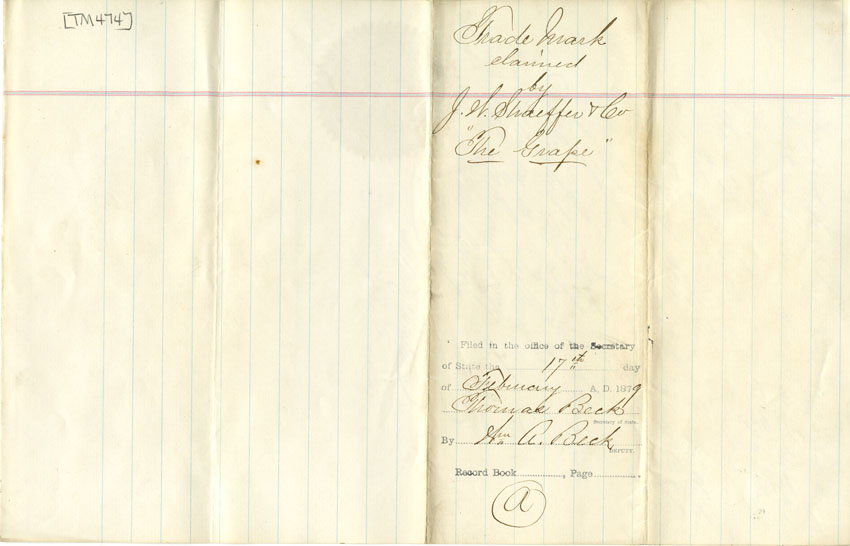 [TM474]
Trade Mark
claimed
by
J. W. Shaeffer & Co
"The Grape"
Filed in the office of the Secretary
of State the 17th day
of February A. D. 1879
Thomas Beck
Secretary of State.
By Wm A. Beck
DEPUTY.
Record Book ........, Page ........
A